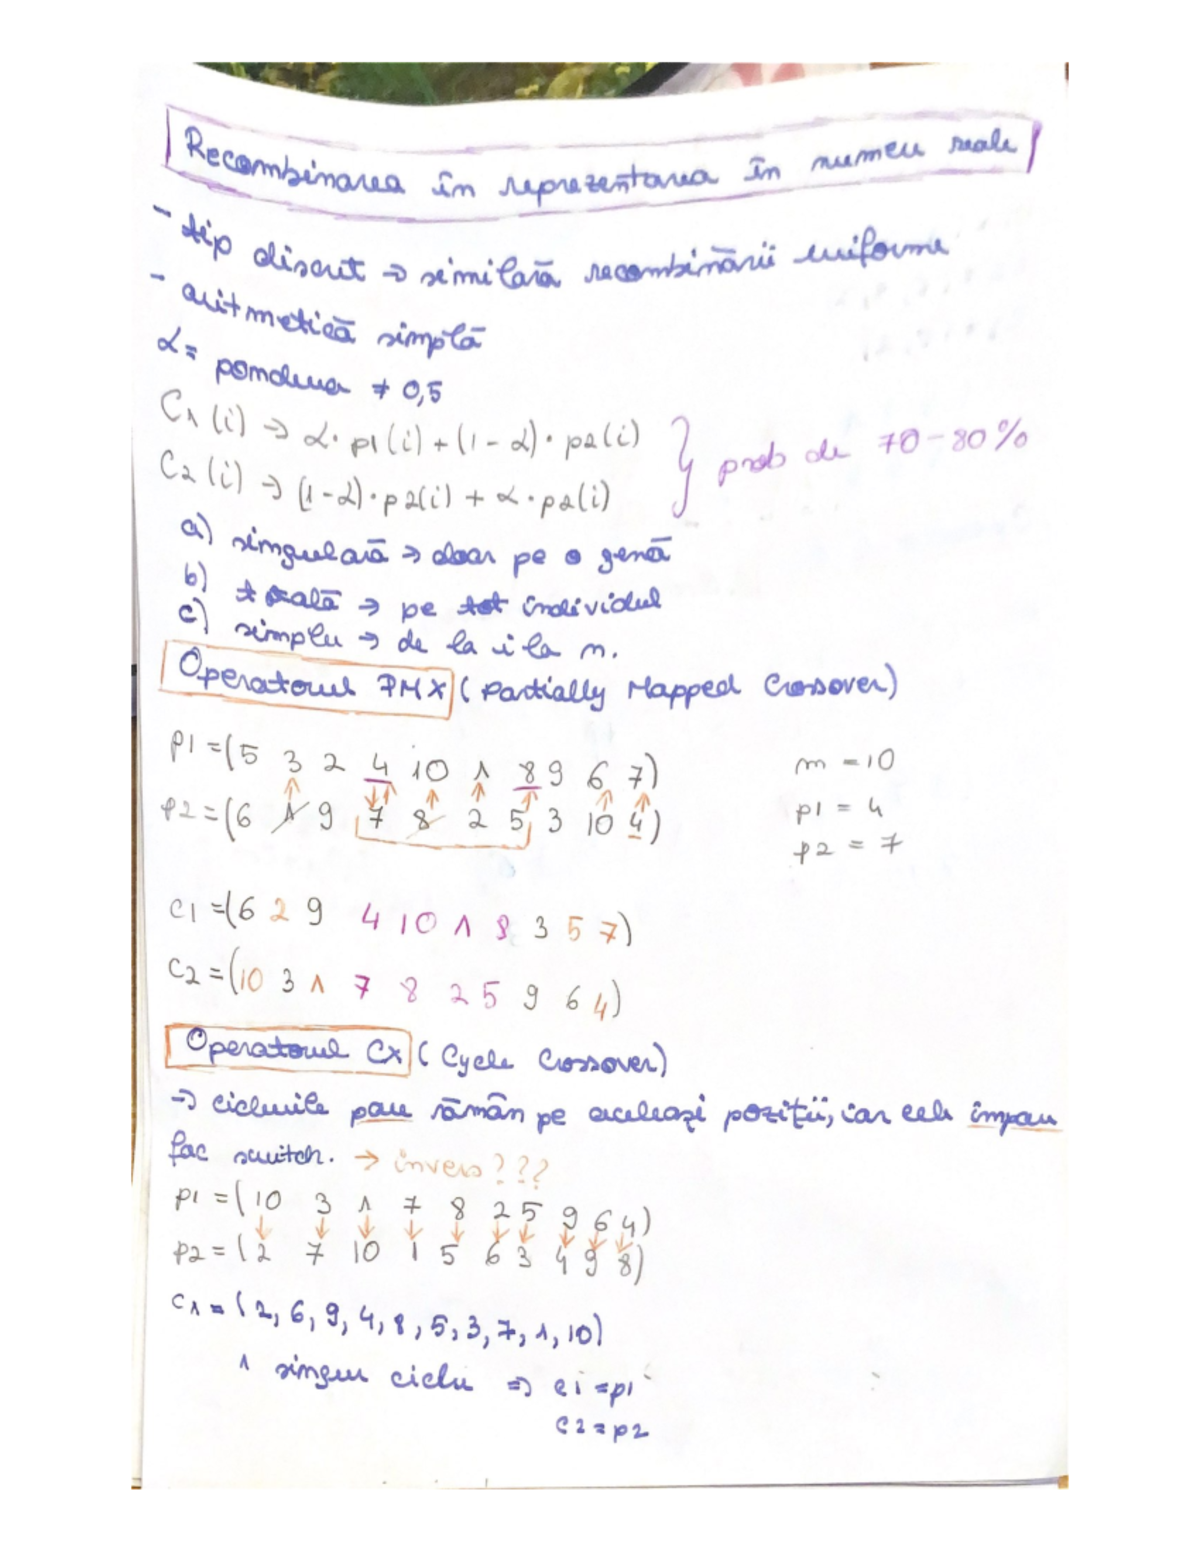 Recombinarea în reprezentarea în numeru reale
- tip discret → similară recombinării uniforme
- aritmetică simplă
α = ponderea ≠ 0,5
C1(i) → α · p1(i) + (1 - α) · p2(i) } prob de 70-80%
C2(i) → (1-α) · p2(i) + α · p2(i)
a) singulară → doar pe o genă
b) totală → pe tot individul
c) simplu → de la i la n.
Operatorul PMX (Partially Mapped Crossover)
p1 = (5 3 2 4 10 1 8 9 6 7) m = 10
p2 = (6 1 9 7 8 2 5 3 10 4) p1 = 4
p2 = 7
c1 = (6 2 9 4 10 1 8 3 5 7)
c2 = (10 3 1 7 8 2 5 9 6 4)
Operatorul CX (Cycle Crossover)
→ ciclurile pare rămân pe aceleași poziții, iar cele impare
fac switch. → invers???
p1 = (10 3 1 7 8 2 5 9 6 4)
p2 = (2 7 10 1 5 6 3 4 9 8)
C1 = (2, 6, 9, 4, 8, 5, 3, 7, 1, 10)
1 singur ciclu ⇒ c1 = p1
c2 = p2